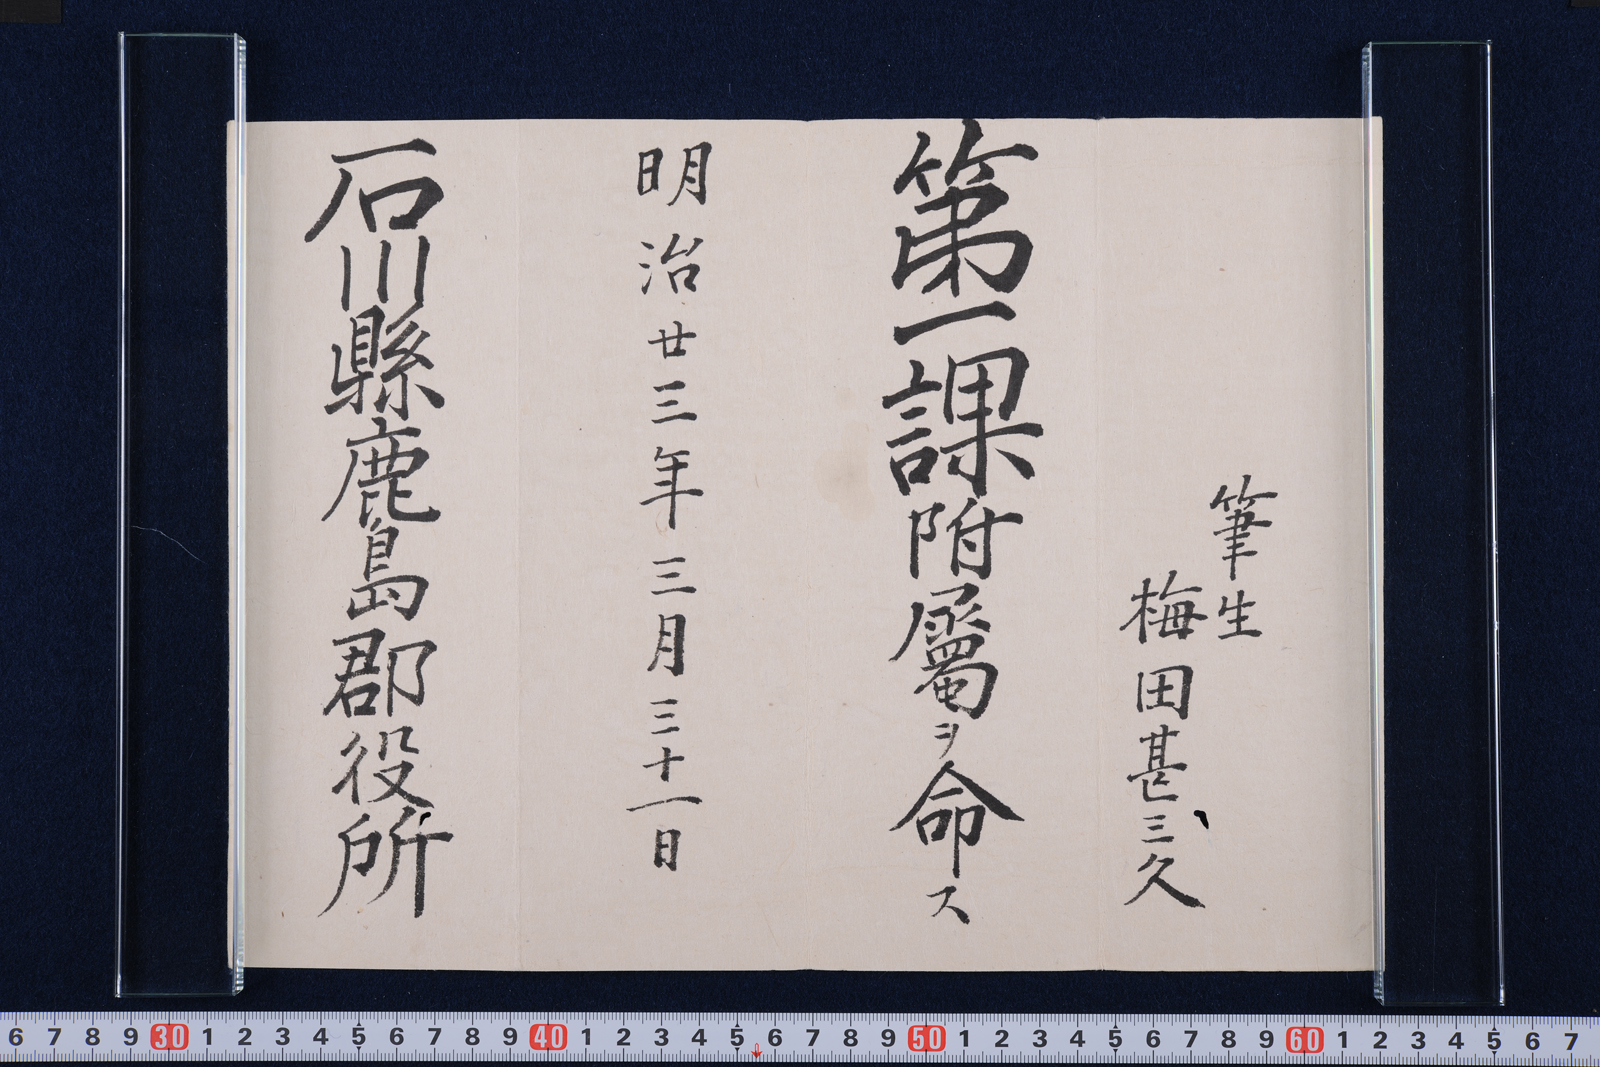 筆生
梅田甚三久
第一課附屬ヲ命ス
明治廿三年三月三十一日
石川縣鹿島郡役所
6 7 8 9 30 1 2 3 4 5 6 7 8 9 40 1 2 3 4 5 6 7 8 9 50 1 2 3 4 5 6 7 8 9 60 1 2 3 4 5 6 7